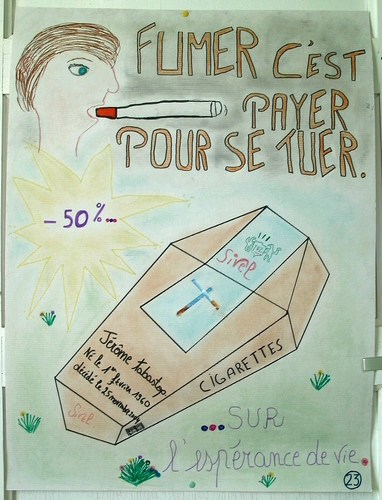 FUMER C'EST
PAYER
POUR SE TUER.
- 50%...
Sivel
Jérôme Tabastop
Né le 1er février 1960
décédé le 25 novembre
CIGARETTES
Sivel
...SUR
l'espérance de vie.
23